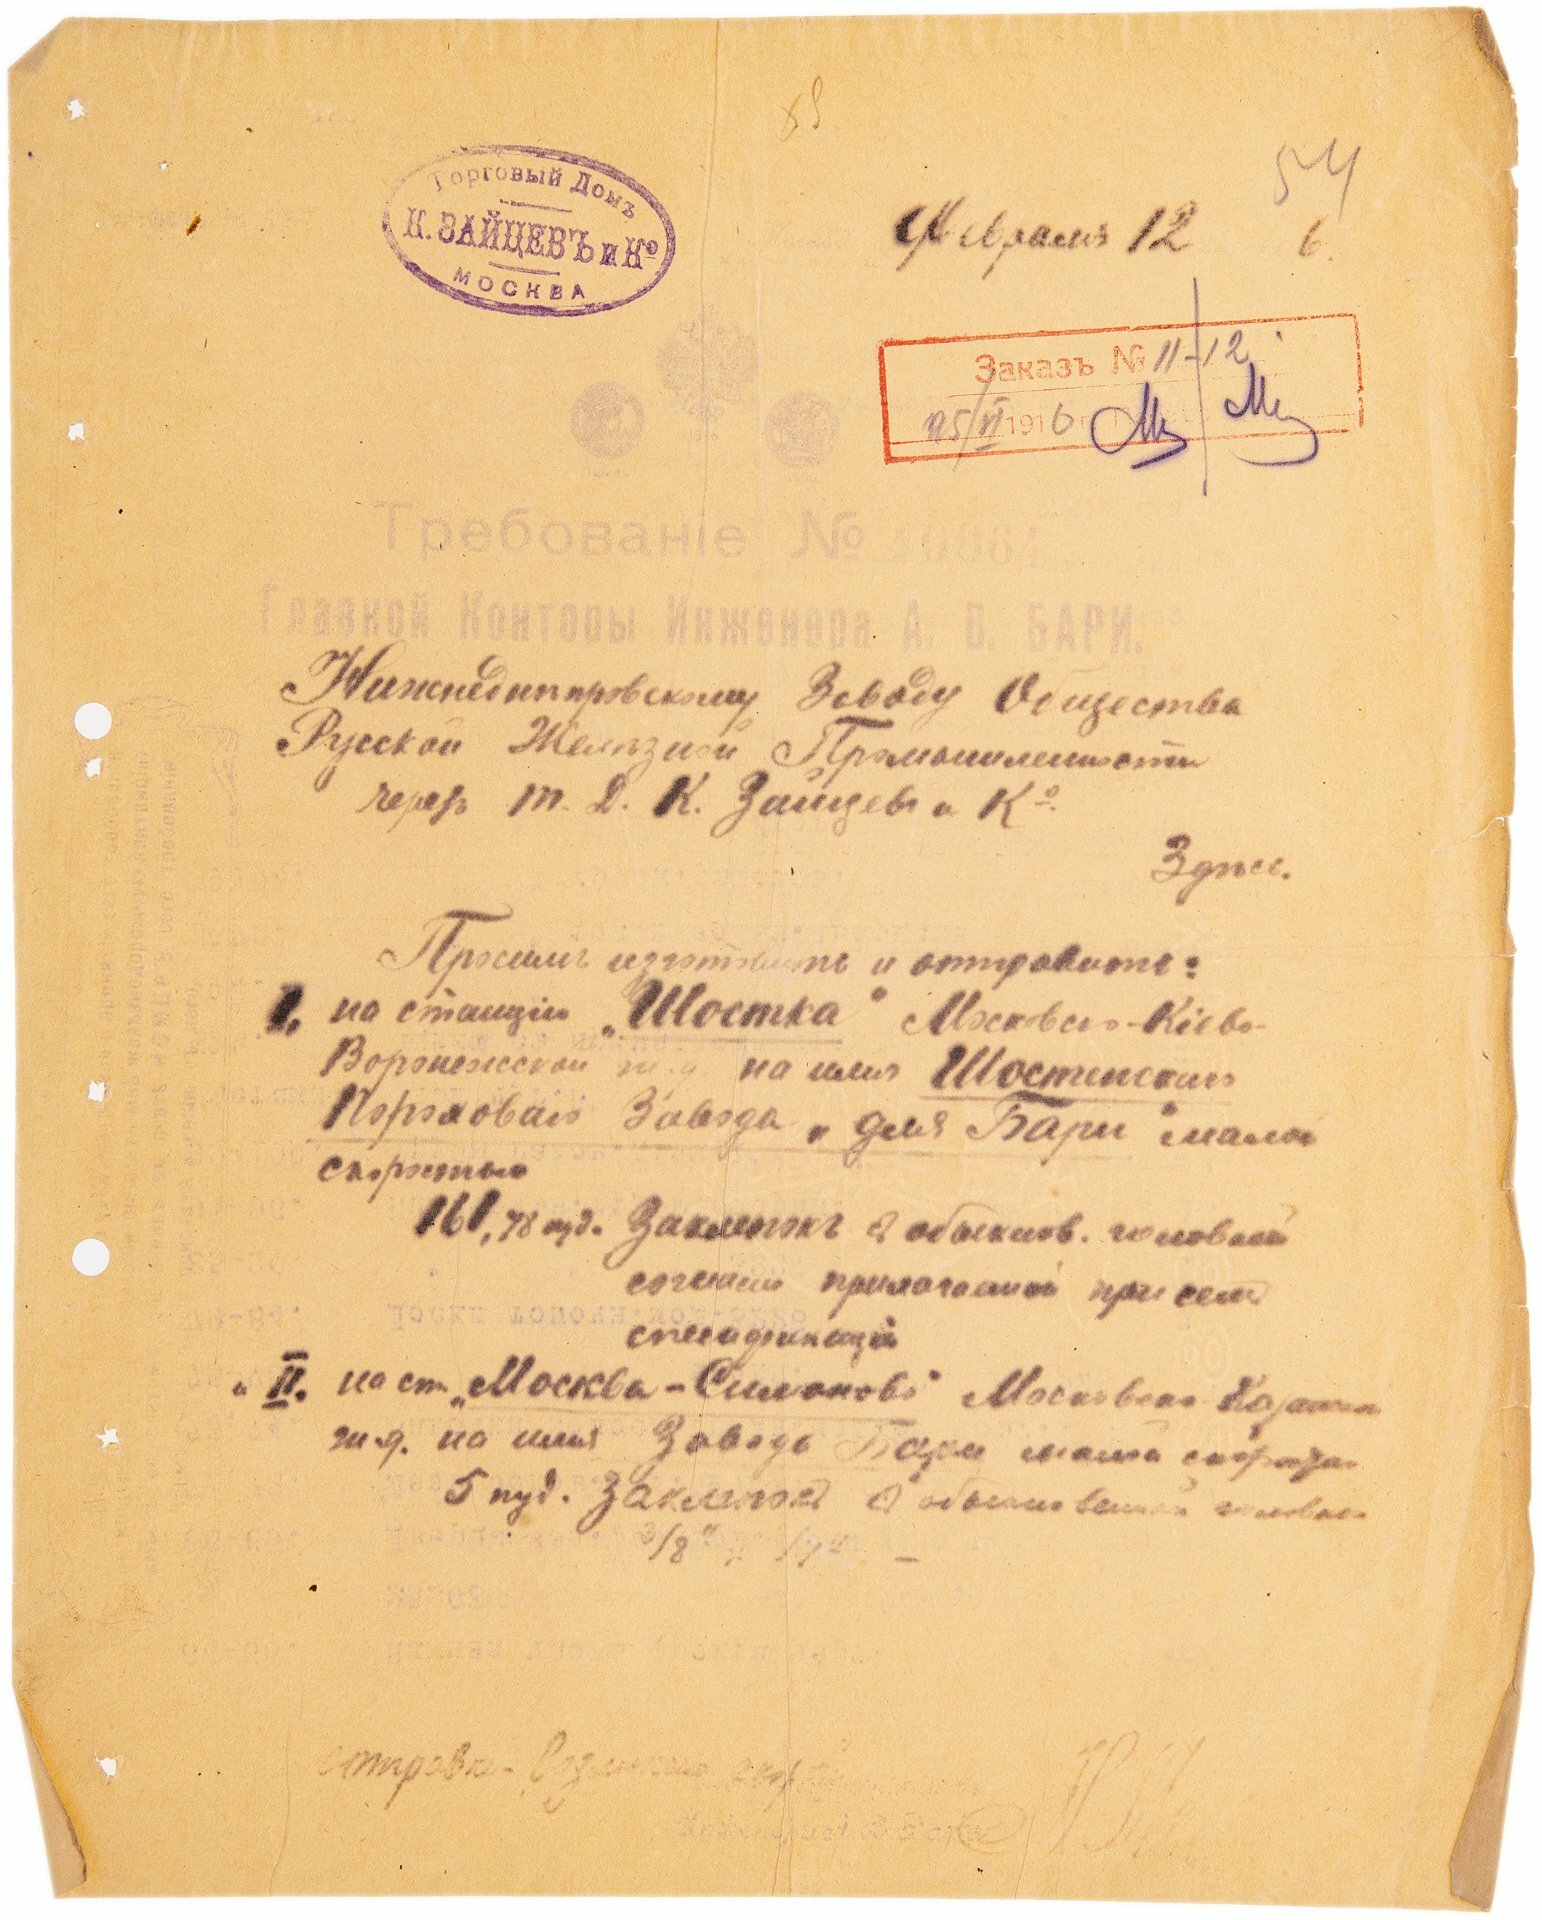 54
Торговый Домъ
К. ЗАЙЦЕВЪ и К⁰
МОСКВА
Февраля 12 6.
Заказъ № 11-12
25/VI 1916
Требованіе №
Главной Конторы Инженера А. В. БАРИ.
Нижнеднѣпровскому Заводу Общества
Русской Желѣзной Промышленности
черезъ Т. Д. К. Зайцевъ и К⁰.
Здѣсь.
Просимъ изготовить и отправить:
I. на станцію „Шостка" Московско-Кіево-
Воронежской ж.д. на имя Шостенскаго
Пороховаго Завода „для Бари" малой
скоростью
161,78 пуд. Заклепокъ съ обыкнов. головкой
согласно прилагаемой при семъ
спецификаціи
и II. на ст. „Москва-Симоново" Московско-Казанск.
ж.д. на имя Завода Бари малой скоростью
5 пуд. Заклепокъ съ обыкновенной головкой
3/8"